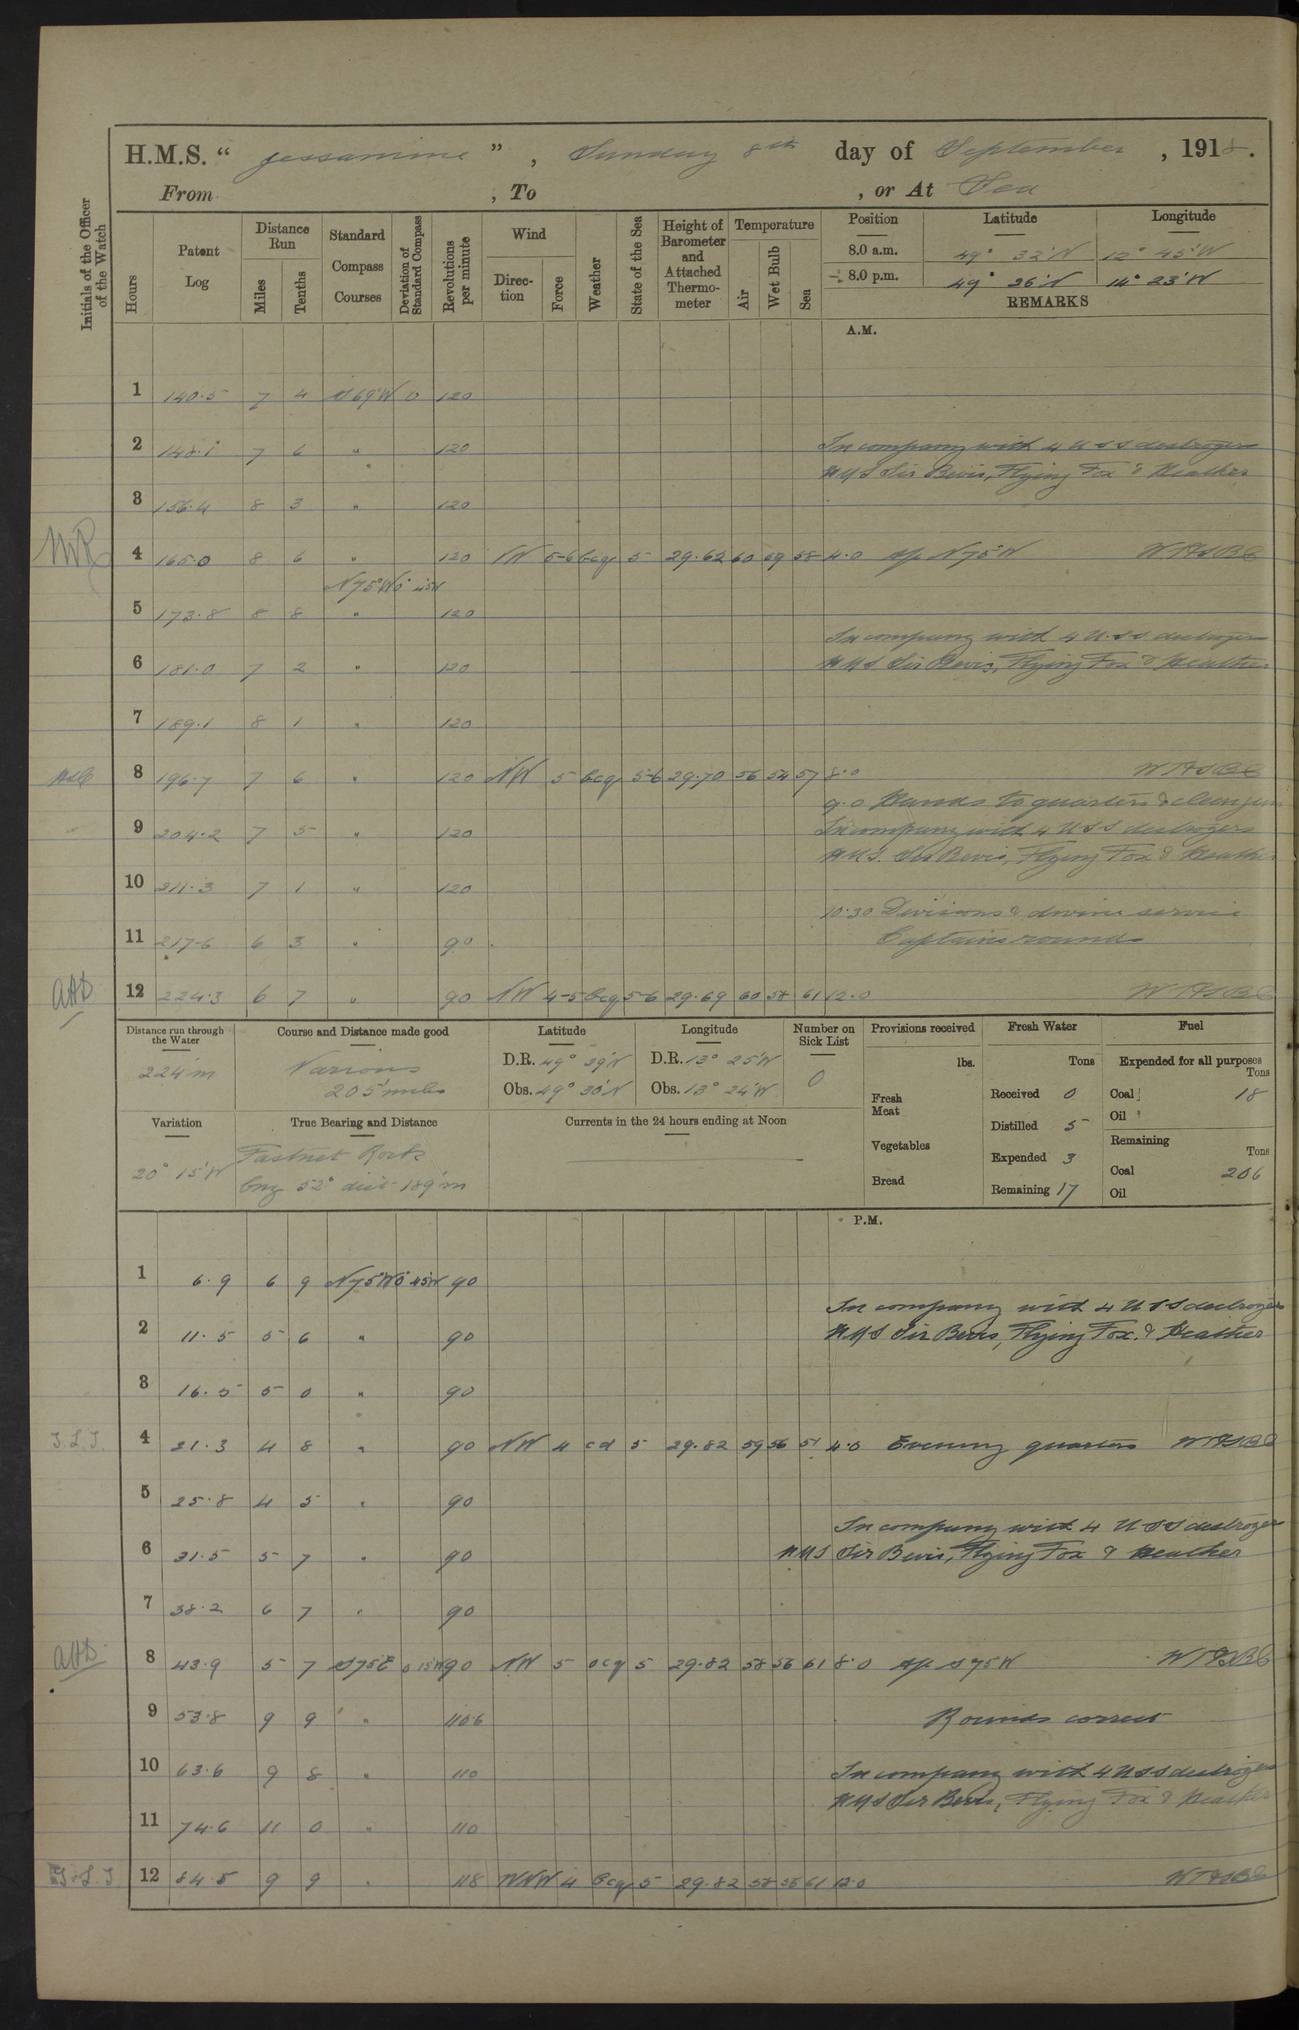 H.M.S. “Jessamine”, Sunday 8th day of September, 1918.
From , To , or At Sea
Initials of the Officer of the Watch
Hours
Patent Log
Distance Run
Miles
Tenths
Standard Compass Courses
Deviation of Standard Compass
Revolutions per minute
Wind
Direction
Force
Weather
State of the Sea
Height of Barometer and Attached Thermometer
Temperature
Air
Wet Bulb
Sea
Position Latitude Longitude
8.0 a.m. 49° 32'N 12° 45'W
8.0 p.m. 49° 26'N 14° 23'W
REMARKS
A.M.
1 140.5 7 4 S69°W 0 120
2 148.1 7 6 " 120
In company with 4 USS destroyers
HMS Sir Bevis, Flying Fox & Heather
3 156.4 8 3 " 120
4 165.0 8 6 " 120 NW 5-6 bcq 5 29.62 60 59 58 4.0 A/c N75°W
N75°W 0° 45W
5 173.8 8 8 " 120
In company with 4 U.S.S destroyers
6 181.0 7 2 " 120 HMS Sir Bevis, Flying Fox & Heather
7 189.1 8 1 " 120
8 196.7 7 6 " 120 NW 5 bcq 5-6 29.70 56 54 57 8.0
9.0 Hands to quarters & clean guns
9 204.2 7 5 " 120 In company with 4 USS destroyers
HMS. Sir Bevis, Flying Fox & Heather
10 211.3 7 1 " 120
10.30 Divisions & divine service
11 217.6 6 3 " 90 Captains rounds
12 224.3 6 7 " 90 NW 4-5 bcq 5-6 29.69 60 58 61 12.0
Distance run through the Water
224'm
Course and Distance made good
Various
205' miles
Latitude
D.R. 49° 39'N
Obs. 49° 30'N
Longitude
D.R. 13° 25'W
Obs. 13° 24'W
Number on Sick List
0
Provisions received
lbs.
Fresh Meat
Vegetables
Bread
Fresh Water
Tons
Received 0
Distilled 5
Expended 3
Remaining 17
Fuel
Expended for all purposes
Tons
Coal 18
Oil
Remaining
Tons
Coal 206
Oil
Variation
20° 15'W
True Bearing and Distance
Fastnet Rock
brg 52° dist 189'm
Currents in the 24 hours ending at Noon
P.M.
1 6.9 6 9 N75°W 0° 45W 90
In company with 4 USS destroyers
2 11.5 5 6 " 90 HMS Sir Bevis, Flying Fox. & Heather
3 16.5 5 0 " 90
J.L.J. 4 21.3 4 8 " 90 NW 4 cd 5 29.82 59 56 4.0 Evening quarters
5 25.8 4 5 " 90
In company with 4 USS destroyers
6 31.5 5 7 " 90 HMS Sir Bevis, Flying Fox & Heather
7 38.2 6 7 " 90
8 43.9 5 7 S75E 0 15W 90 NW 5 ocq 5 29.82 58 56 61 8.0 A/c S75W
9 53.8 9 9 " Rounds correct
10 63.6 9 8 " 110 In company with 4 USS destroyers
HMS Sir Bevis, Flying Fox & Heather
11 74.6 11 0 " 110
12 84.5 9 9 " 118 WNW 4 bcq 5 29.82 58 61 12.0